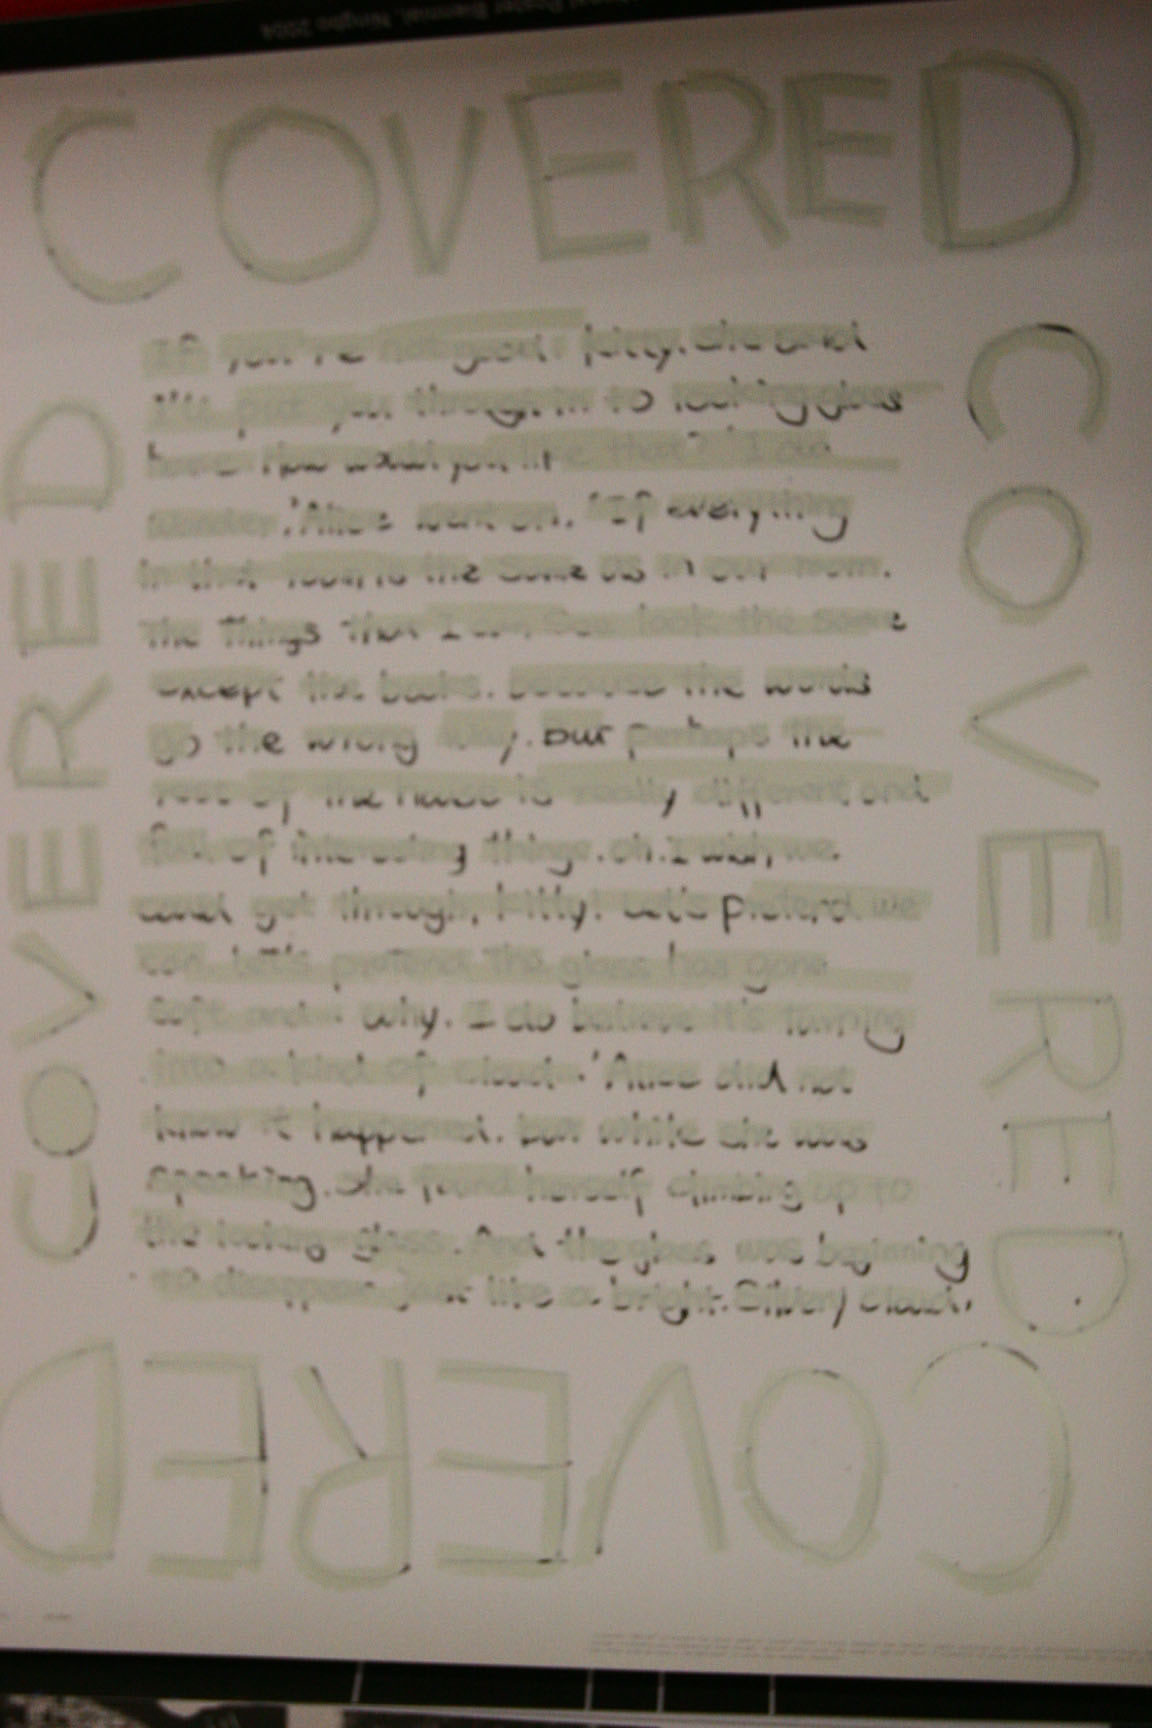 COVERED
If you're not good, kitty. She said
I'll put you through in to looking glass
How would you like that? 'I do
wonder.' Alice went on. 'If everything
in that room is the same as in our room.
The things that I can see look the same
except the books. because the words
go the wrong way. but perhaps the
rest of the house is really different and
full of interesting things. oh. I wish, we
could get through, kitty! Let's pretend we
can. Let's pretend the glass has gone
soft and why. I do believe it's turning
into a kind of cloud.' Alice did not
know it happened. but while she was
speaking. She found herself climbing up to
the looking glass. And the glass was beginning
to disappear just like a bright. Silvery cloud.
COVERED
COVERED
COVERED